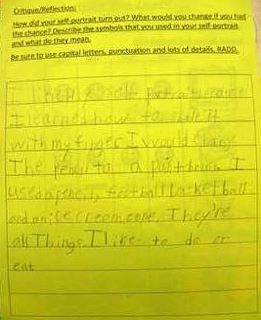 Critique/Reflection:
How did your self-portrait turn out? What would you change if you had
the chance? Describe the symbols that you used in your self-portrait
and what do they mean.
Be sure to use capital letters, punctuation and lots of details. RADD.
I self portrait came
I learned how to it
with my finger I would chang
The pencil to a paint brush I
used a pencil, football basket ball
and an icecream cone. They're
all Things I like to do or
eat